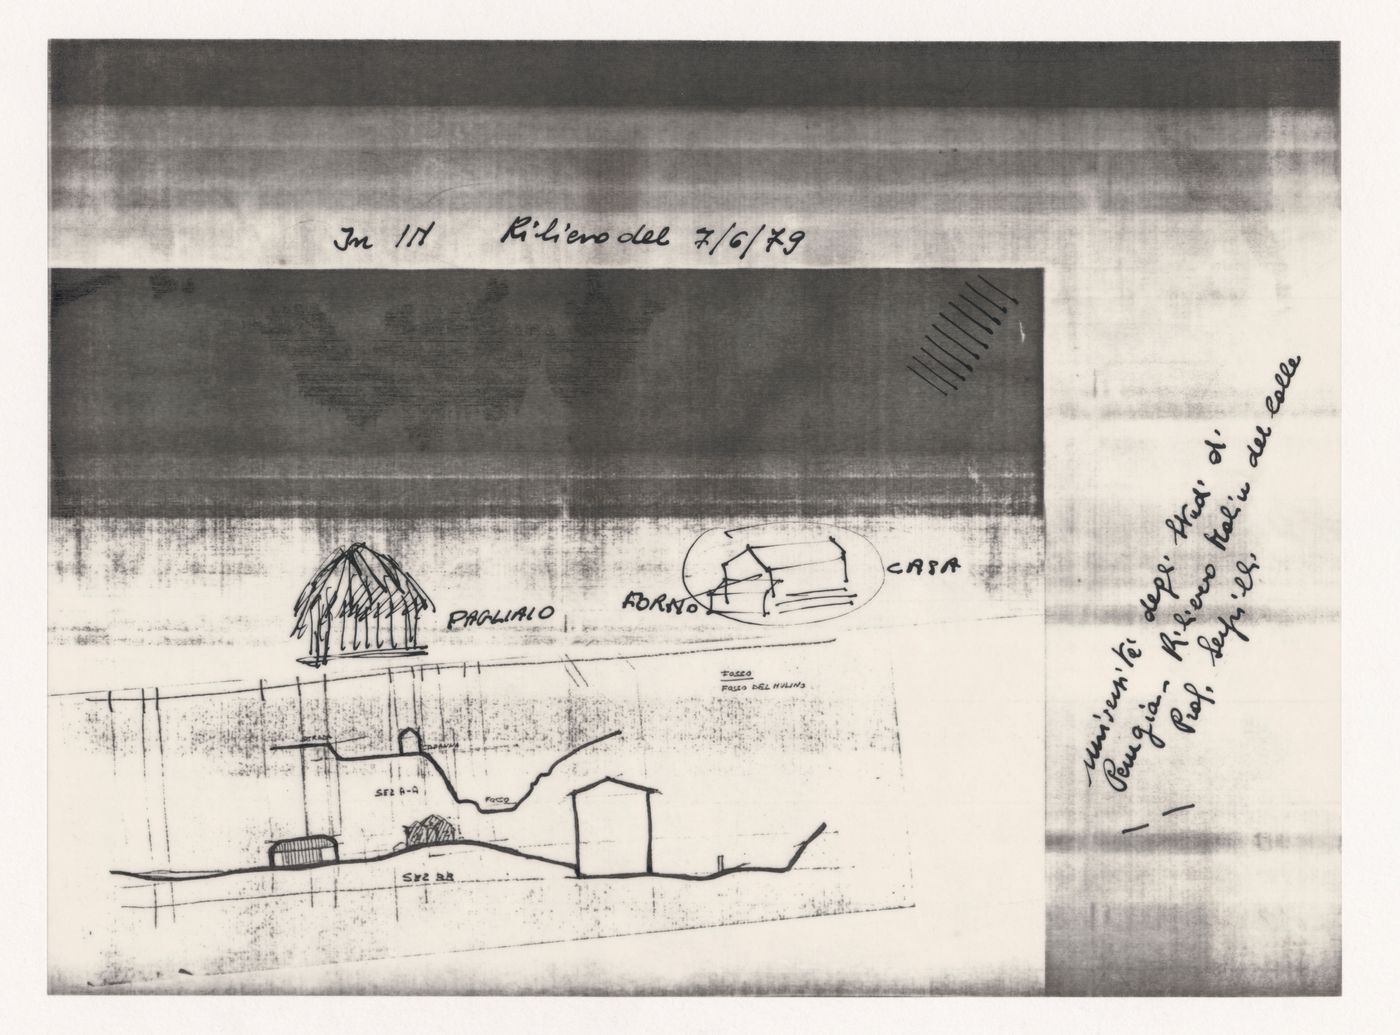 In 1N Rilievo del 7/6/79
PAGLIAIO
FORNO
CASA
FOSSO
FOSSO DEL MULINO
STRADA
SEZ A-A
FOSSO
SEZ BB
Università degli Studi di
Perugia - Rilievo Molin del Colle
Prof. Serpilli